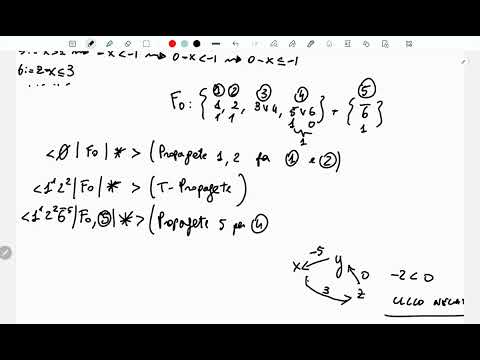 x≥2 ⟿ -x<-1 ⟿ 0-x<-1 ⟿ 0-x≤-1
6:= z-x≤3
① ② ③ ④ ⑤
F₀: { 1, 2, 3∨4, 5∨6 } + { 6̅ }
1 1 1 0 1
1
<∅ | F₀ | *> (Propagate 1, 2 per ① e ②)
<1¹2² | F₀ | *> (T-Propagate)
<1¹2²6̅⁵ | F₀, ⑤ | *> (Propagate 5 per ④
x -5 y 0 z 3
-2<0
CICLO NEGAT